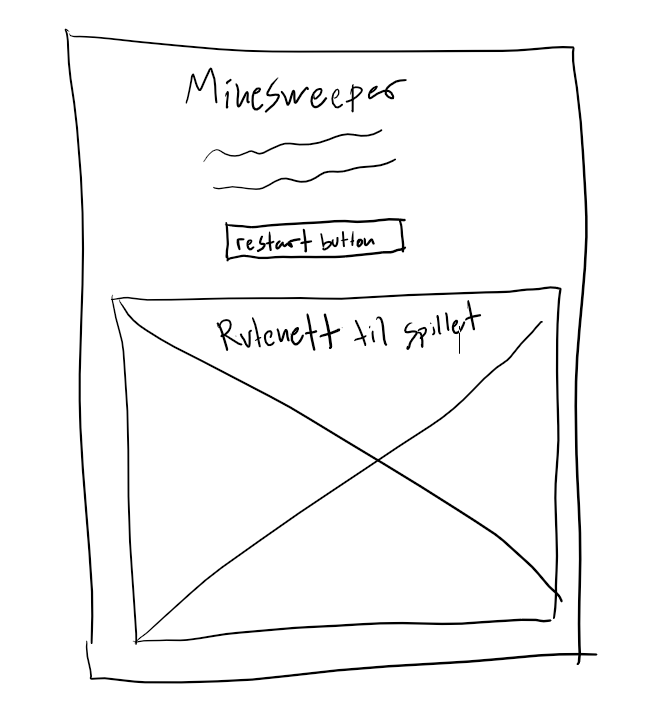 Minesweeper
restart button
Rutenett til spillet